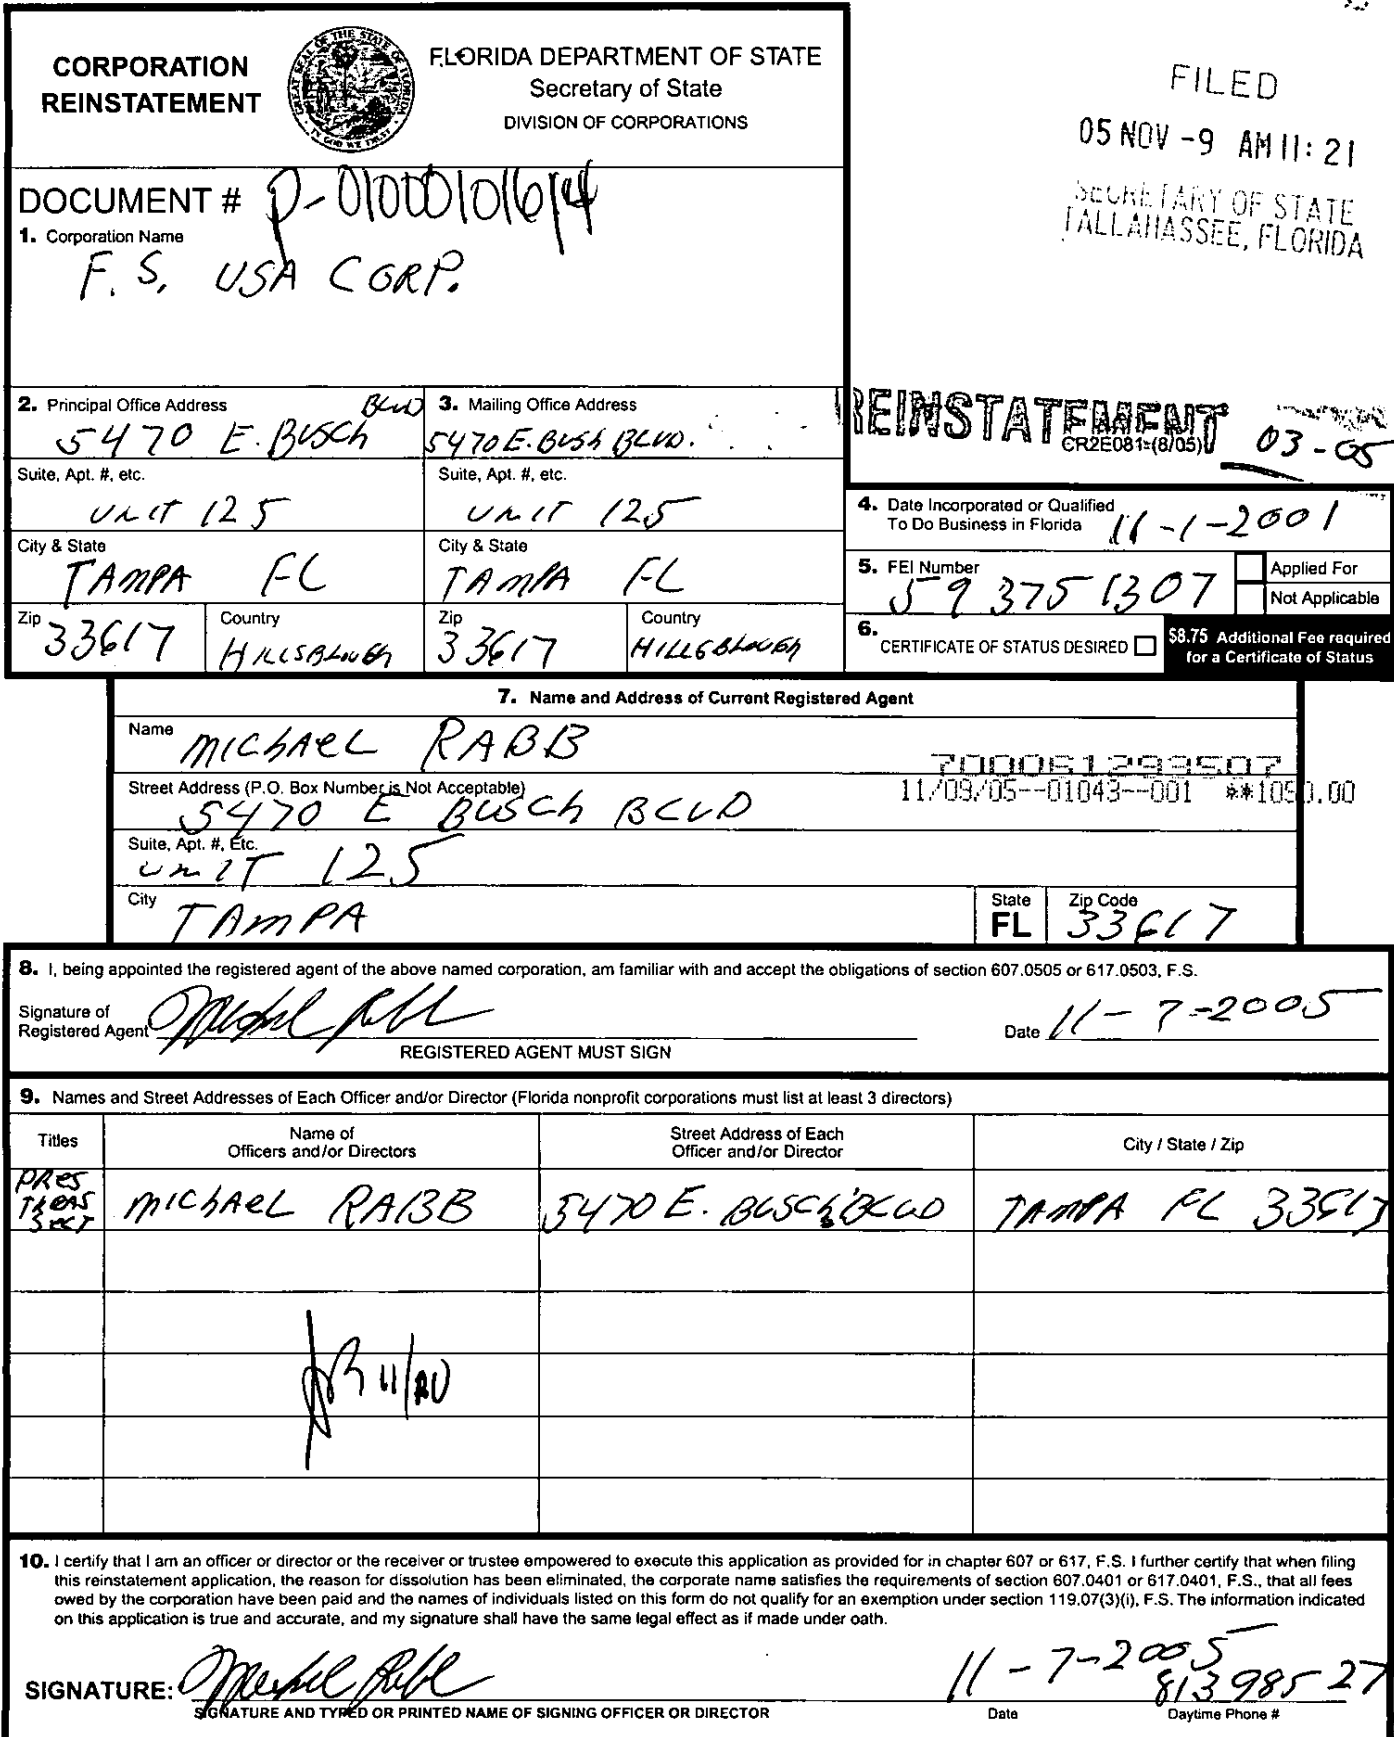 CORPORATION
REINSTATEMENT
FLORIDA DEPARTMENT OF STATE
Secretary of State
DIVISION OF CORPORATIONS
FILED
05 NOV -9 AM 11: 21
SECRETARY OF STATE
TALLAHASSEE, FLORIDA
DOCUMENT # P-01000101614
1. Corporation Name
F. S. USA CORP.
REINSTATEMENT
CR2E081 (8/05)
03-05
2. Principal Office Address
5470 E. BUSCH BLVD
3. Mailing Office Address
5470 E. BUSH BLVD.
Suite, Apt. #, etc.
UNIT 125
Suite, Apt. #, etc.
UNIT 125
City & State
TAMPA FL
City & State
TAMPA FL
Zip
33617
Country
HILLSBLOUGH
Zip
33617
Country
HILLSBLOUGH
4. Date Incorporated or Qualified
To Do Business in Florida 11-1-2001
5. FEI Number
59 3751307
Applied For
Not Applicable
6. CERTIFICATE OF STATUS DESIRED
$8.75 Additional Fee required
for a Certificate of Status
7. Name and Address of Current Registered Agent
Name MICHAEL RABB
700061293507
11/09/05--01043--001 **1050.00
Street Address (P.O. Box Number is Not Acceptable)
5470 E BUSCH BLVD
Suite, Apt. #, Etc.
UNIT 125
City TAMPA
State
FL
Zip Code
33617
8. I, being appointed the registered agent of the above named corporation, am familiar with and accept the obligations of section 607.0505 or 617.0503, F.S.
Signature of
Registered Agent Michael Rabb
Date 11-7-2005
REGISTERED AGENT MUST SIGN
9. Names and Street Addresses of Each Officer and/or Director (Florida nonprofit corporations must list at least 3 directors)
Titles
Name of
Officers and/or Directors
Street Address of Each
Officer and/or Director
City / State / Zip
PRES
TREAS
SECT
MICHAEL RABB
5470 E. BUSCH BLVD
TAMPA FL 33617
10. I certify that I am an officer or director or the receiver or trustee empowered to execute this application as provided for in chapter 607 or 617, F.S. I further certify that when filing
this reinstatement application, the reason for dissolution has been eliminated, the corporate name satisfies the requirements of section 607.0401 or 617.0401, F.S., that all fees
owed by the corporation have been paid and the names of individuals listed on this form do not qualify for an exemption under section 119.07(3)(i), F.S. The information indicated
on this application is true and accurate, and my signature shall have the same legal effect as if made under oath.
SIGNATURE: Michael Rabb
11-7-2005
813 985 27
SIGNATURE AND TYPED OR PRINTED NAME OF SIGNING OFFICER OR DIRECTOR
Date
Daytime Phone #